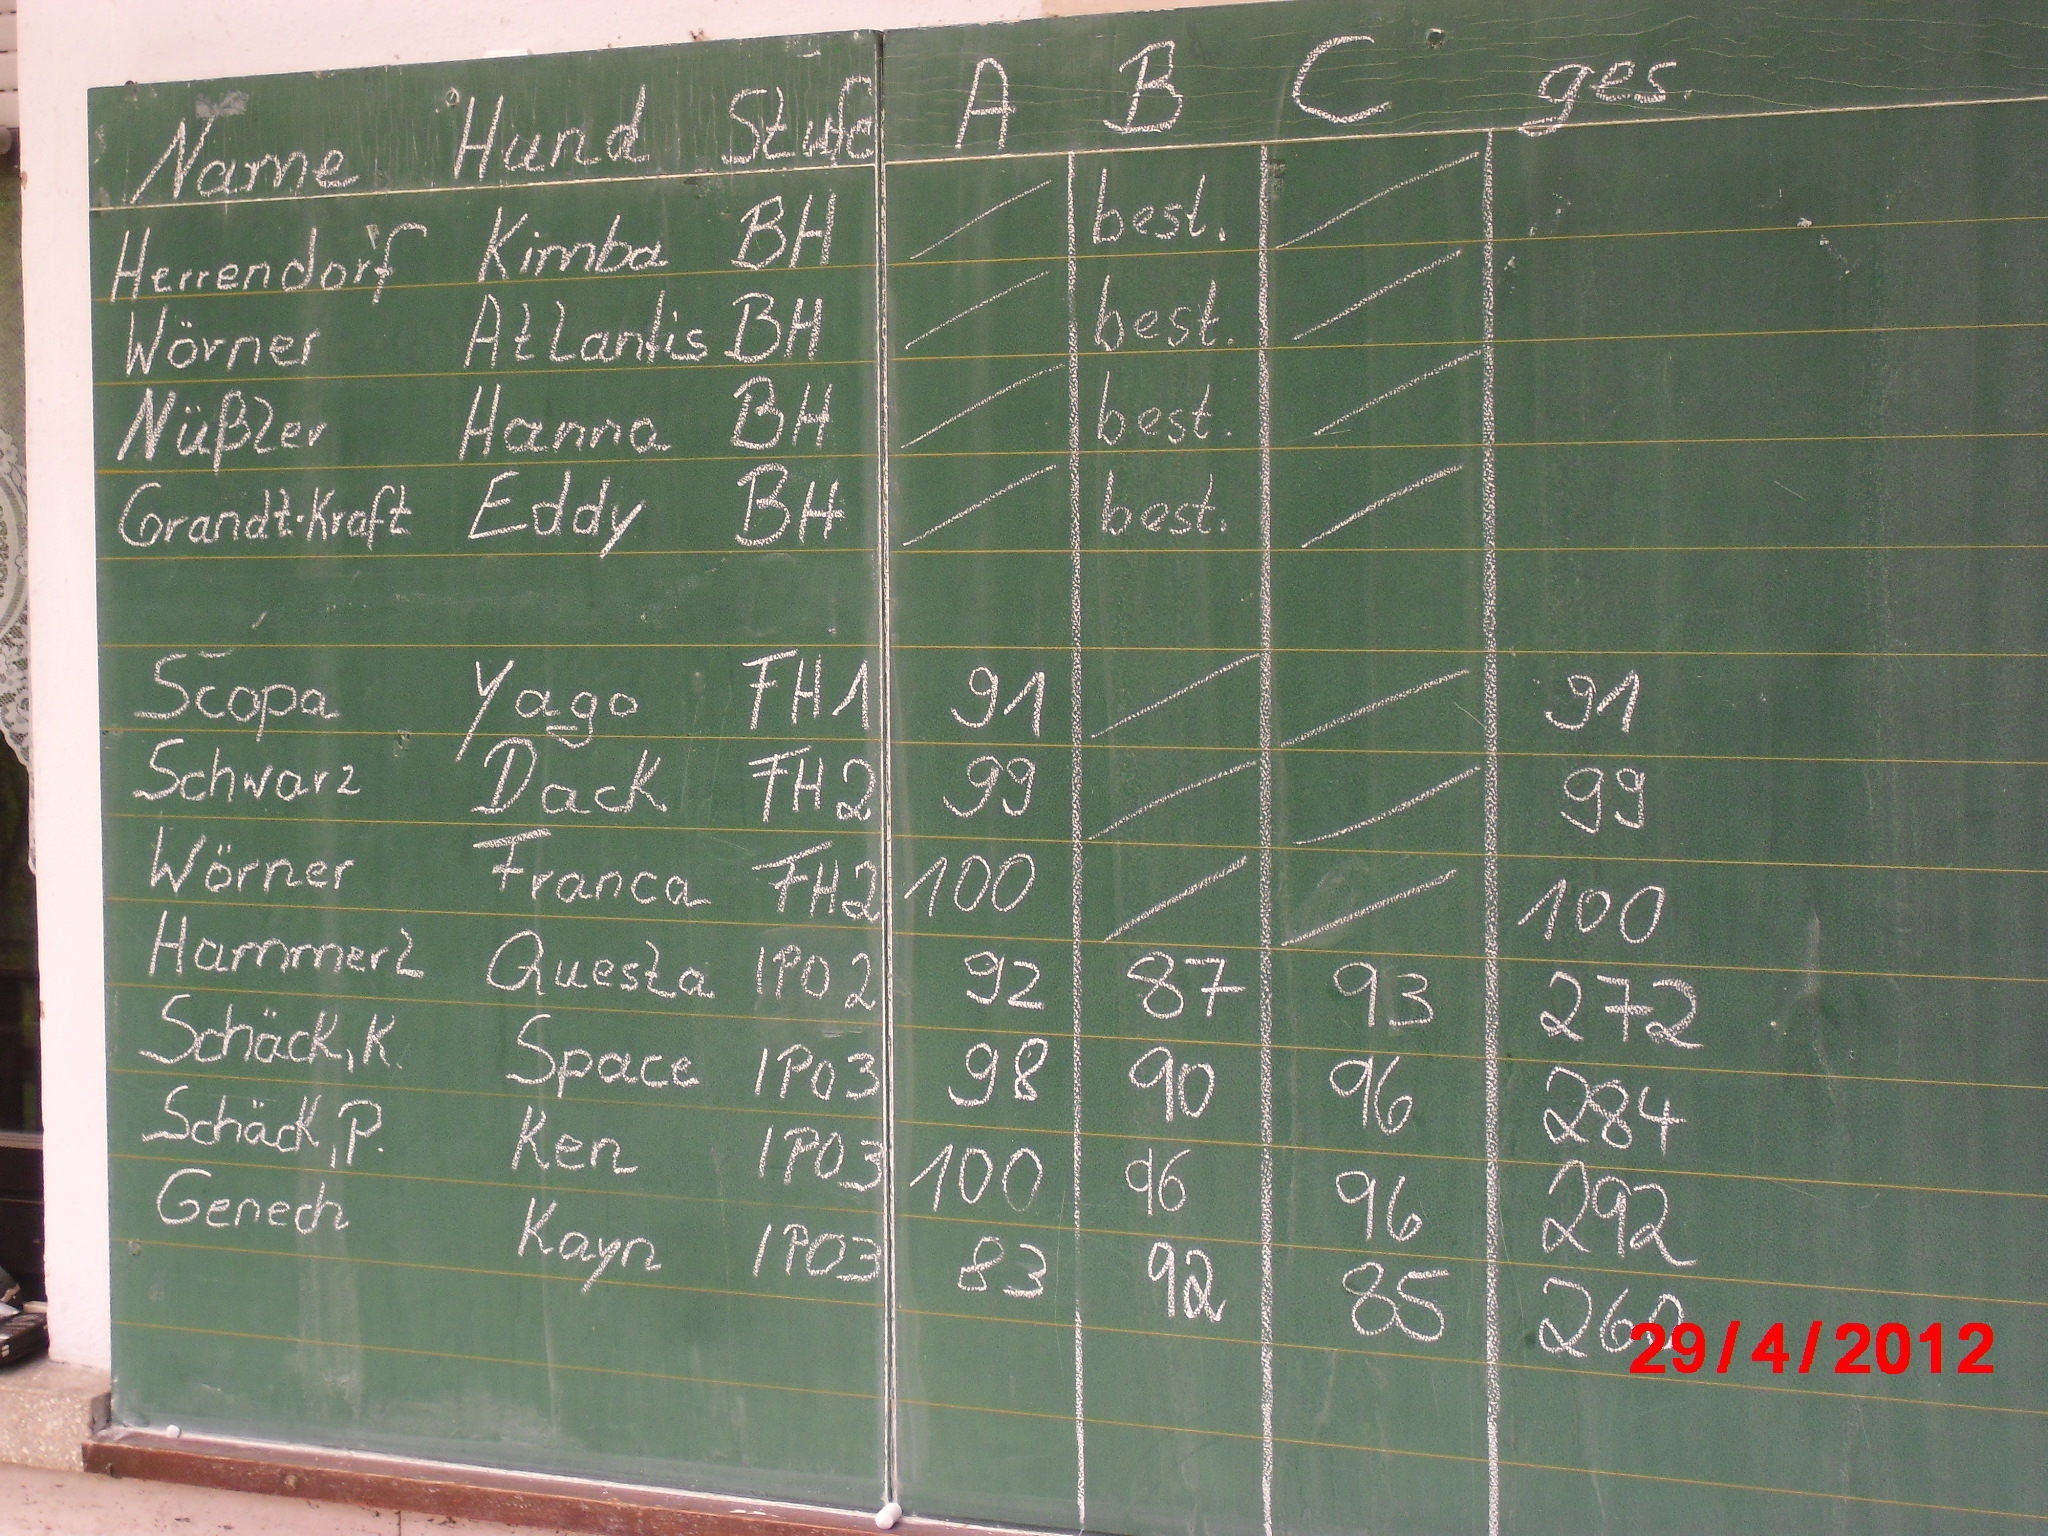 Name Hund Stufe A B C ges.
Herrendorf Kimba BH / best. /
Wörner Atlantis BH / best. /
Nüßler Hanna BH / best. /
Grandt-Kraft Eddy BH / best. /
Scopa Yago FH1 91 / / 91
Schwarz Dack FH2 99 / / 99
Wörner Franca FH2 100 / / 100
Hammerl Questa IPO2 92 87 93 272
Schäck, K. Space IPO3 98 90 96 284
Schäck, P. Ken IPO3 100 96 96 292
Genech Kayn IPO3 83 92 85 260
29/4/2012